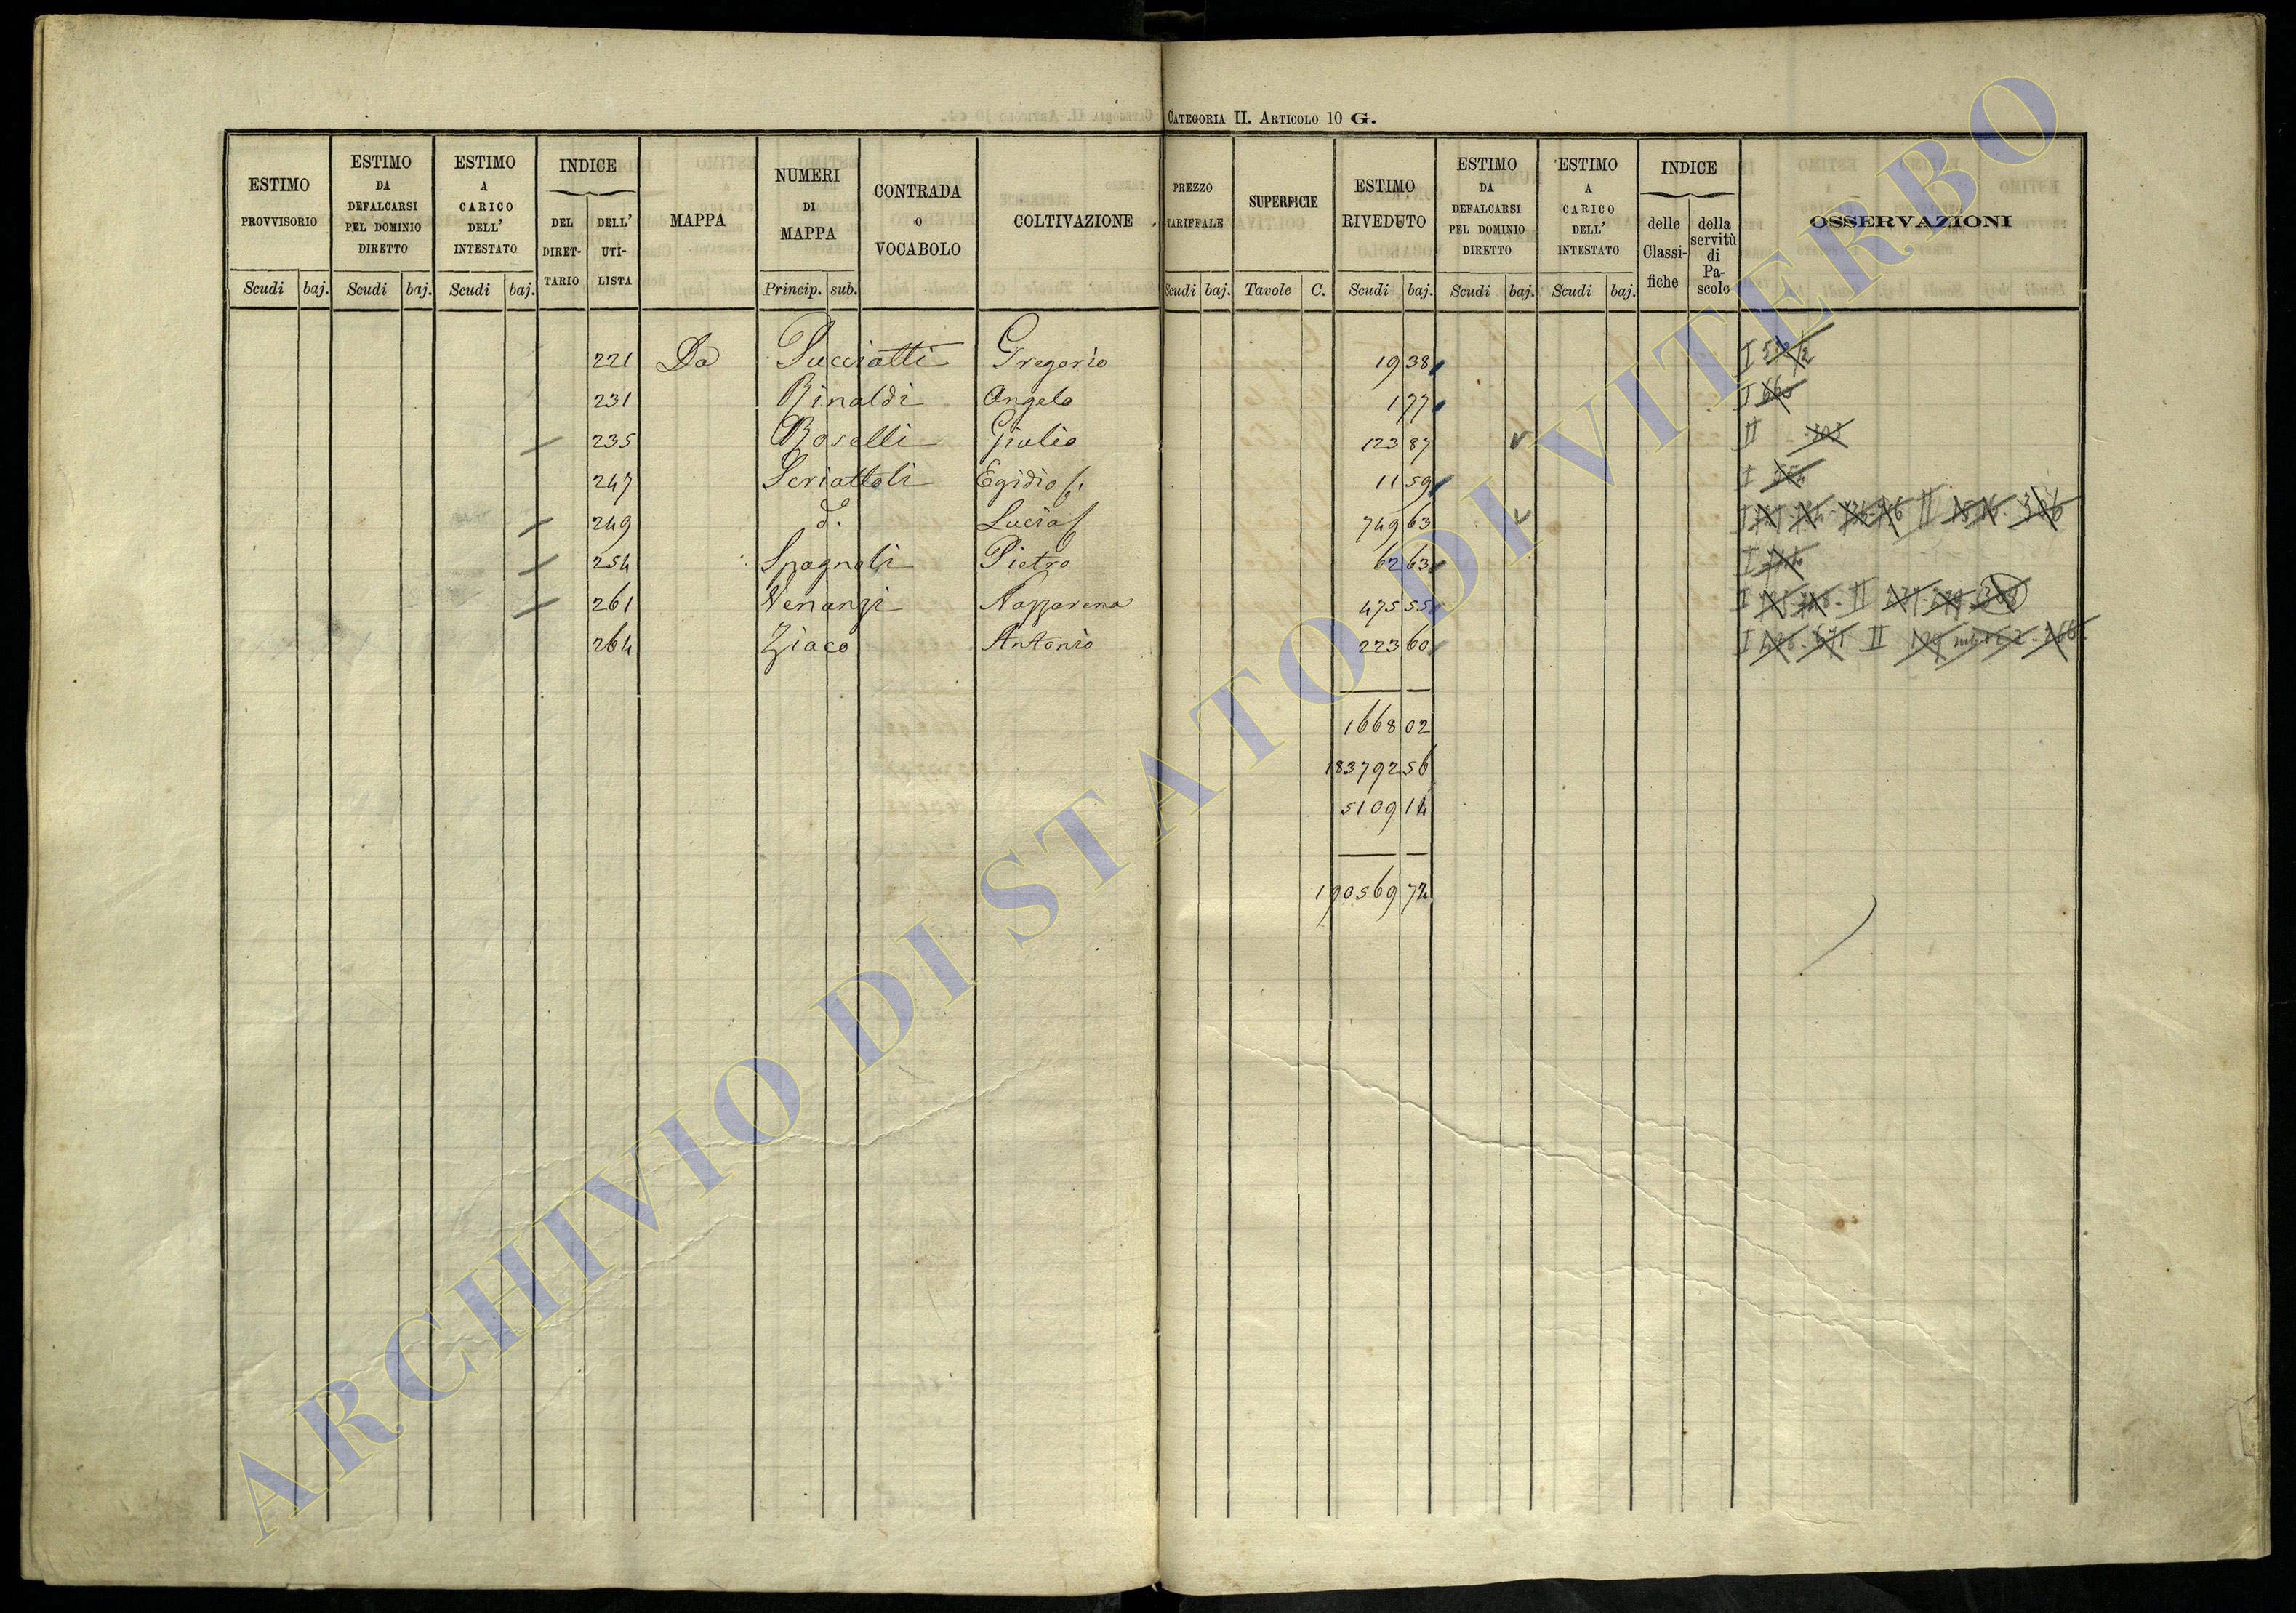 CATEGORIA II. ARTICOLO 10 G.
ESTIMO PROVVISORIO Scudi baj.
ESTIMO DA DEFALCARSI PEL DOMINIO DIRETTO Scudi baj.
ESTIMO A CARICO DELL' INTESTATO Scudi baj.
INDICE DEL DIRETTARIO DELL' UTILISTA
MAPPA
NUMERI DI MAPPA Princip. sub.
CONTRADA O VOCABOLO
COLTIVAZIONE
PREZZO TARIFFALE Scudi baj.
SUPERFICIE Tavole C.
ESTIMO RIVEDUTO Scudi baj.
ESTIMO DA DEFALCARSI PEL DOMINIO DIRETTO Scudi baj.
ESTIMO A CARICO DELL' INTESTATO Scudi baj.
INDICE delle Classifiche della servitù di Pascolo
OSSERVAZIONI
221 Da Pucciatti Gregorio 19 38 I
231 Rinaldi Angelo 1 77 I
235 Roselli Giulio 123 87 II
247 Scriattoli Egidio 11 59 I
249 d.° Lucia 749 63 I II
254 Spagnoli Pietro 62 63 I
261 Venanzi Nazzareno 475 55 I II
264 Ziaco Antonio 223 60 I II
1668 02
183792 56
5109 14
190569 72
ARCHIVIO DI STATO DI VITERBO